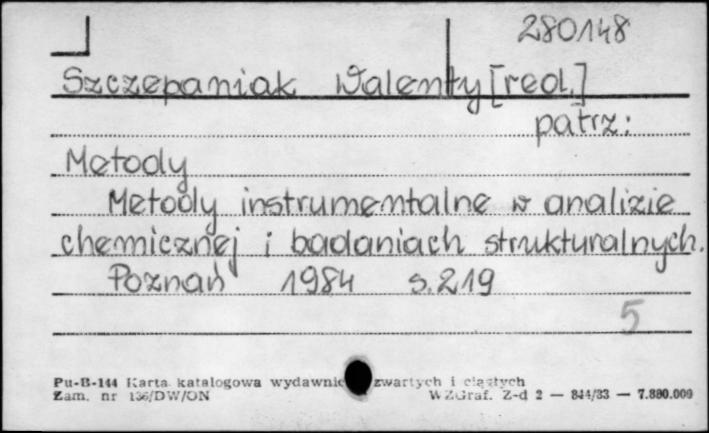 280148
Szczepaniak Walenty [red.]
patrz:
Metody
Metody instrumentalne w analizie
chemicznej i badaniach strukturalnych.
Poznań 1984 s. 219
5
Pu-B-144 Karta katalogowa wydawnic zwartych i ciągłych
Zam. nr 136/DW/ON WZGraf. Z-d 2 — 844/83 — 7.880.000